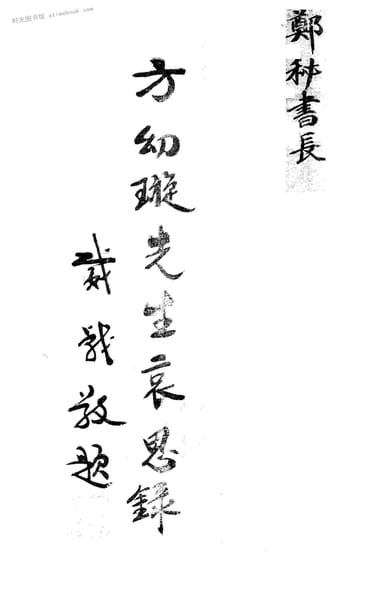 时光图书馆 atimebook.com
鄭秘書長
方幼璇先生哀思錄
戴戟敬題